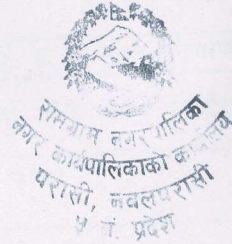 रामग्राम नगरपालिका
नगर कार्यपालिकाको कार्यालय
परासी, नवलपरासी
५ नं. प्रदेश